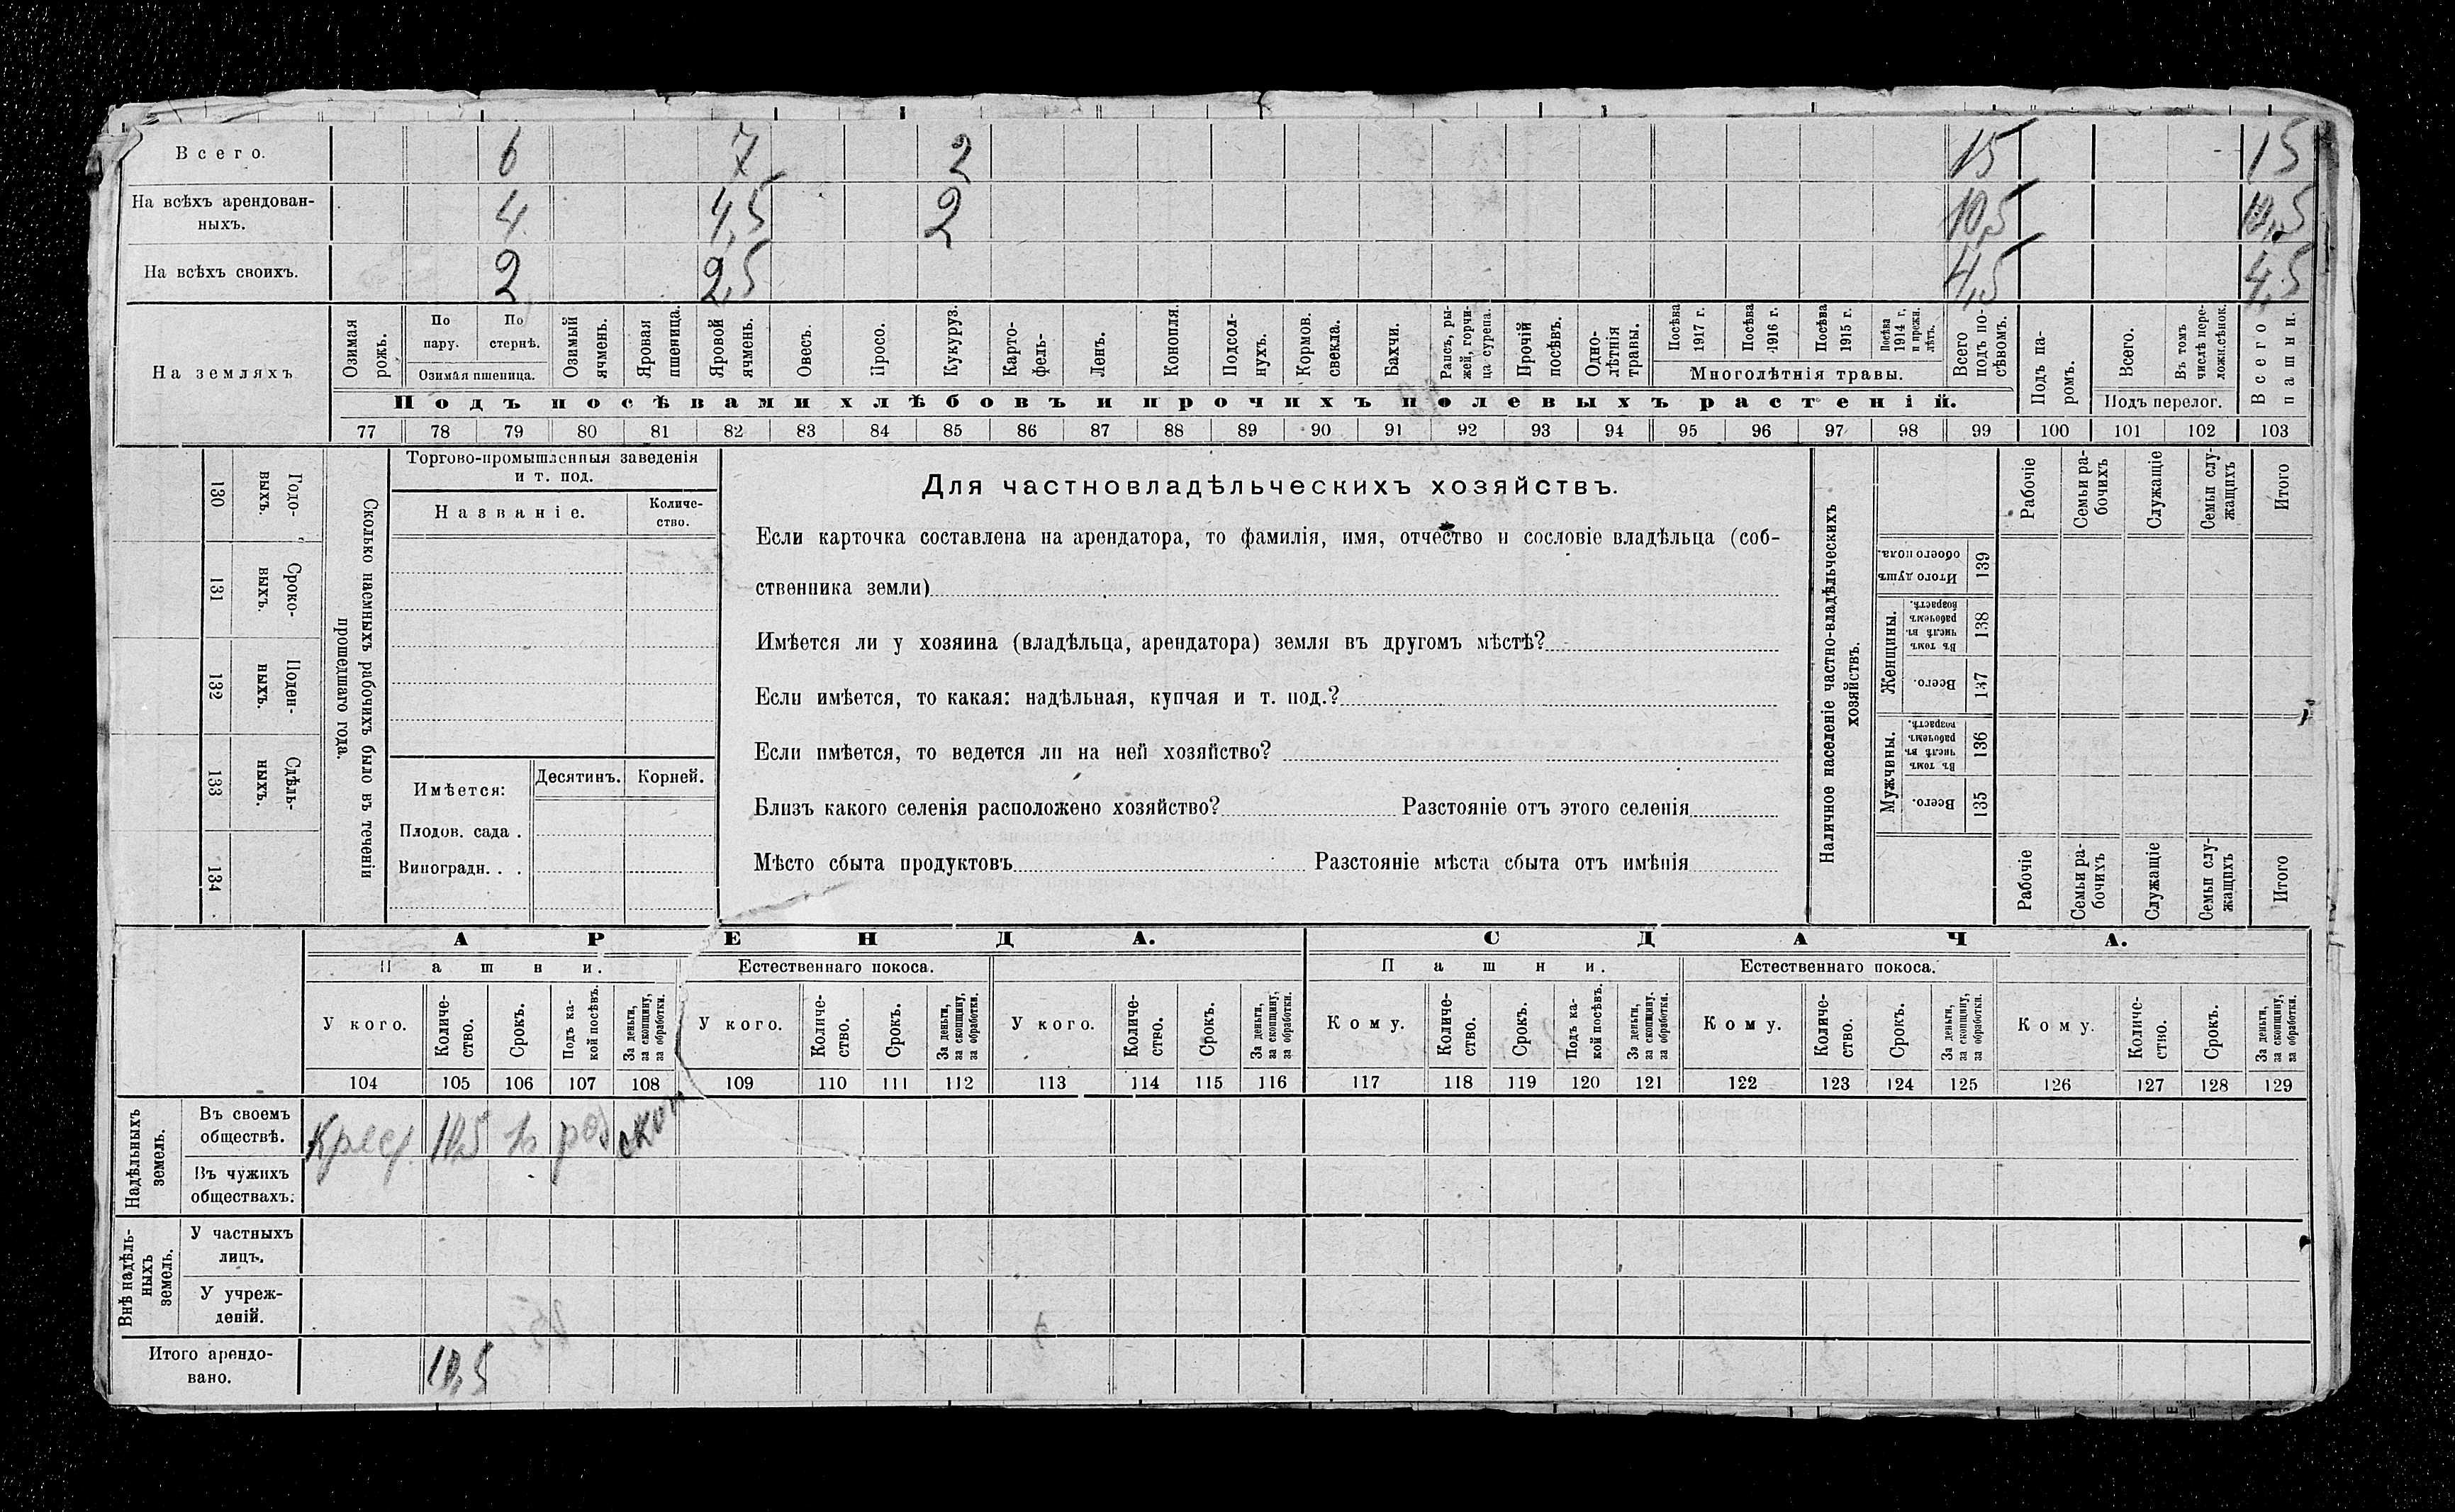 Всего. 6 7 2 15 15
На всѣхъ арендован-
ныхъ. 4 4,5 2 10,5 10,5
На всѣхъ своихъ. 2 2,5 4,5 4,5
На земляхъ
Озимая рожь.
По пару.
По стернѣ.
Озимая пшеница.
Озимый ячмень.
Яровая пшеница.
Яровой ячмень.
Овесъ.
Просо.
Кукуруз.
Карто-
фель.
Ленъ.
Конопля.
Подсол-
нухъ.
Кормов. свекла.
Бахчи.
Рапсъ, ры-
жей, горчи-
ца сурепа.
Прочій посѣвъ.
Одно-
лѣтнія травы.
Посѣва 1917 г.
Посѣва 1916 г.
Посѣва 1915 г.
Посѣва 1914 г. и прежн. лѣтъ.
Многолѣтнія травы.
Всего подъ по-
сѣвомъ.
Подъ па-
ромъ.
Всего.
Въ томъ числѣ пере-
ложн. сѣнок.
Подъ перелог.
Всего пашни.
Подъ посѣвами хлѣбовъ и прочихъ полевыхъ растеній.
77 78 79 80 81 82 83 84 85 86 87 88 89 90 91 92 93 94 95 96 97 98 99 100 101 102 103
130 Годо-
выхъ.
131 Сроко-
выхъ.
132 Поден-
ныхъ.
133 Сдѣль-
ныхъ.
134
Сколько наемныхъ рабочихъ было въ теченіи
прошедшаго года.
Торгово-промышленныя заведенія
и т. под.
Названіе.
Количе-
ство.
Имѣется:
Десятинъ. Корней.
Плодов. сада .
Виноградн. . .
Для частновладѣльческихъ хозяйствъ.
Если карточка составлена на арендатора, то фамилія, имя, отчество и сословіе владѣльца (соб-
ственника земли)
Имѣется ли у хозяина (владѣльца, арендатора) земля въ другомъ мѣстѣ?
Если имѣется, то какая: надѣльная, купчая и т. под.?
Если имѣется, то ведется ли на ней хозяйство?
Близъ какого селенія расположено хозяйство? Разстояніе отъ этого селенія
Мѣсто сбыта продуктовъ Разстояніе мѣста сбыта отъ имѣнія
Наличное населеніе частно-владѣльческихъ
хозяйствъ.
Рабочіе
Семьи ра-
бочихъ
Служащіе
Семьи слу-
жащихъ
Итого
Итого душъ обоего пола. 139
Женщины.
Въ томъ числѣ въ рабочемъ возрастѣ. 138
Всего. 137
Мужчины.
Въ томъ числѣ въ рабочемъ возрастѣ. 136
Всего. 135
Рабочіе
Семьи ра-
бочихъ
Служащіе
Семьи слу-
жащихъ
Итого
АРЕНДА. СДАЧА.
Пашни. Естественнаго покоса. Пашни. Естественнаго покоса.
У кого.
Количе-
ство.
Срокъ.
Подъ ка-
кой посѣвъ.
За деньги, за скопщину, за обработки.
У кого.
Количе-
ство.
Срокъ.
За деньги, за скопщину, за обработки.
У кого.
Количе-
ство.
Срокъ.
За деньги, за скопщину, за обработки.
Кому.
Количе-
ство.
Срокъ.
Подъ ка-
кой посѣвъ.
За деньги, за скопщину, за обработки.
Кому.
Количе-
ство.
Срокъ.
За деньги, за скопщину, за обработки.
Кому.
Количе-
ство.
Срокъ.
За деньги, за скопщину, за обработки.
104 105 106 107 108 109 110 111 112 113 114 115 116 117 118 119 120 121 122 123 124 125 126 127 128 129
Надѣльныхъ
земель.
Въ своемъ
обществѣ. Крест. 10,5 скоп
Въ чужихъ
обществахъ.
Внѣ надѣль-
ныхъ
земель.
У частныхъ
лицъ.
У учреж-
деній.
Итого арендо-
вано. 10,5